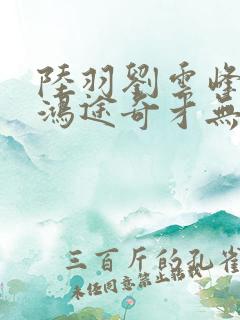 陸羽劉雲峰
鴻途奇才無
三百斤的孔雀
未經同意禁止轉載